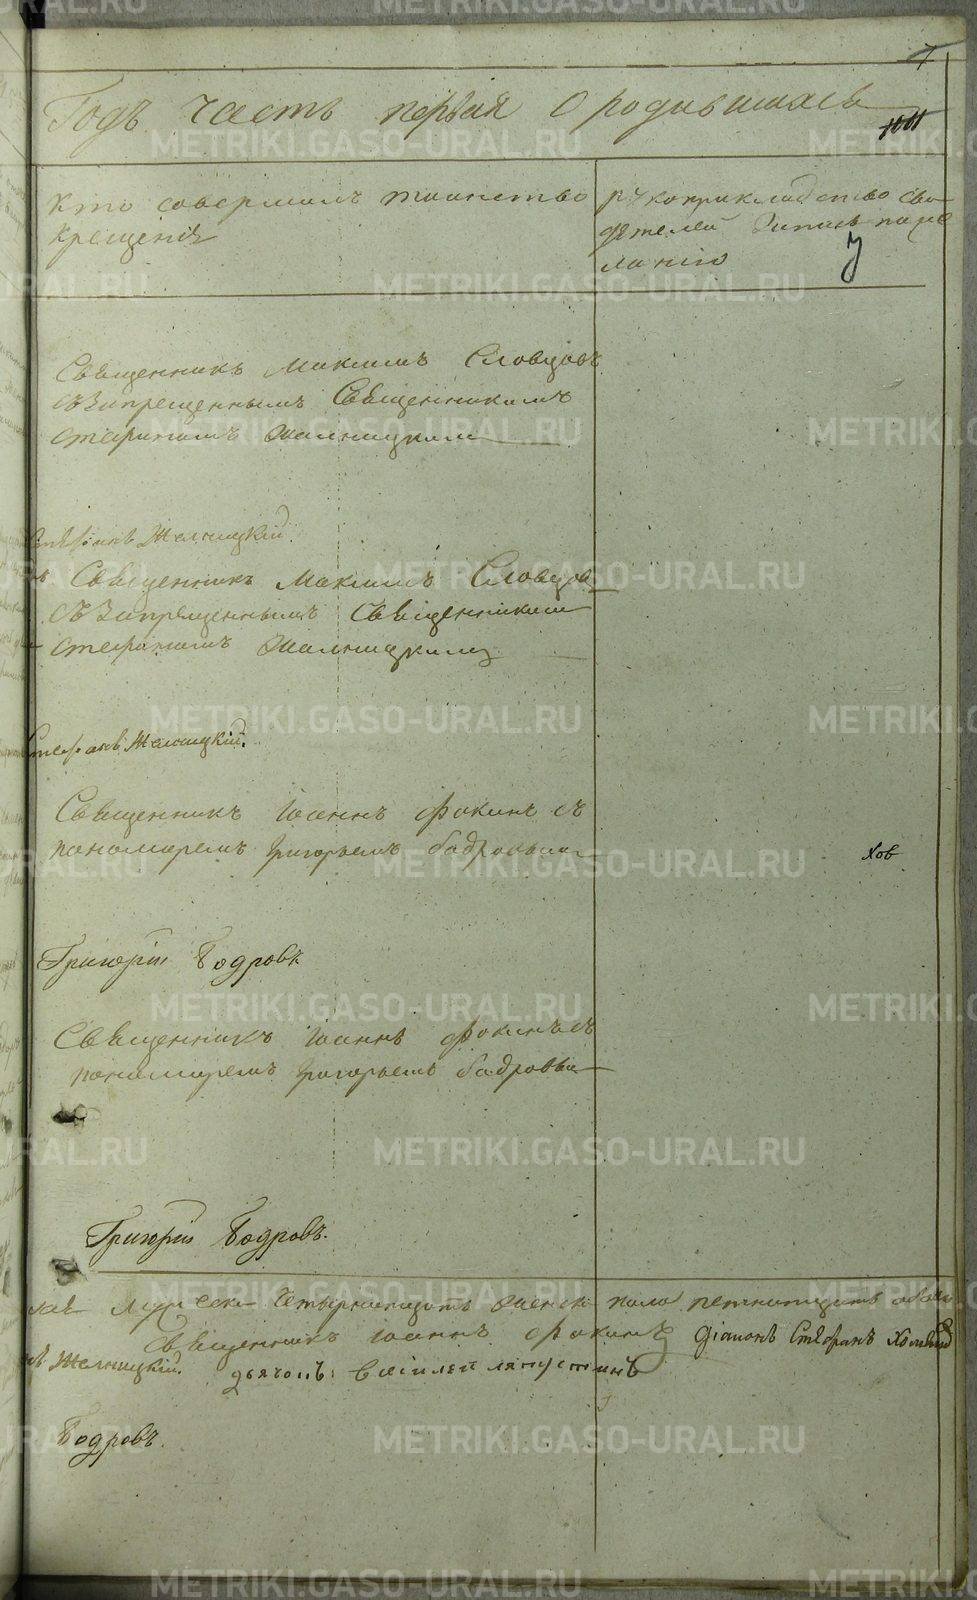 METRIKI.GASO-URAL.RU
7
Годъ Часть первая О родившихся
Кто совершалъ таинство
крещенiя
рукоприкладство сви
детелей записи по же
ланiю
Священникъ Максимъ Словцовъ
съ Запрещеннымъ Священникомъ
Стефаномъ Желницкимъ
Стефанъ Желницкiй.
Священникъ Максимъ Словцов
съ Запрещеннымъ Священником
Стефаномъ Желницкимъ
Стефанъ Желницкiй.
Священникъ Iоаннъ Фокинъ съ
пономаремъ Григорьемъ Бодровым
хов
Григорiй Бодровъ
Священникъ Iоаннъ Фокинъ съ
пономаремъ Григорьемъ Бодровы
Григорiй Бодровъ.
Мужеска Четырнадцать Женск пола пятнадцать обоего
Священникъ Iоаннъ Фокинъ Дiаконъ Стефанъ
Желницкiй. дьячокъ: Василей Ляпустинъ
Бодровъ.